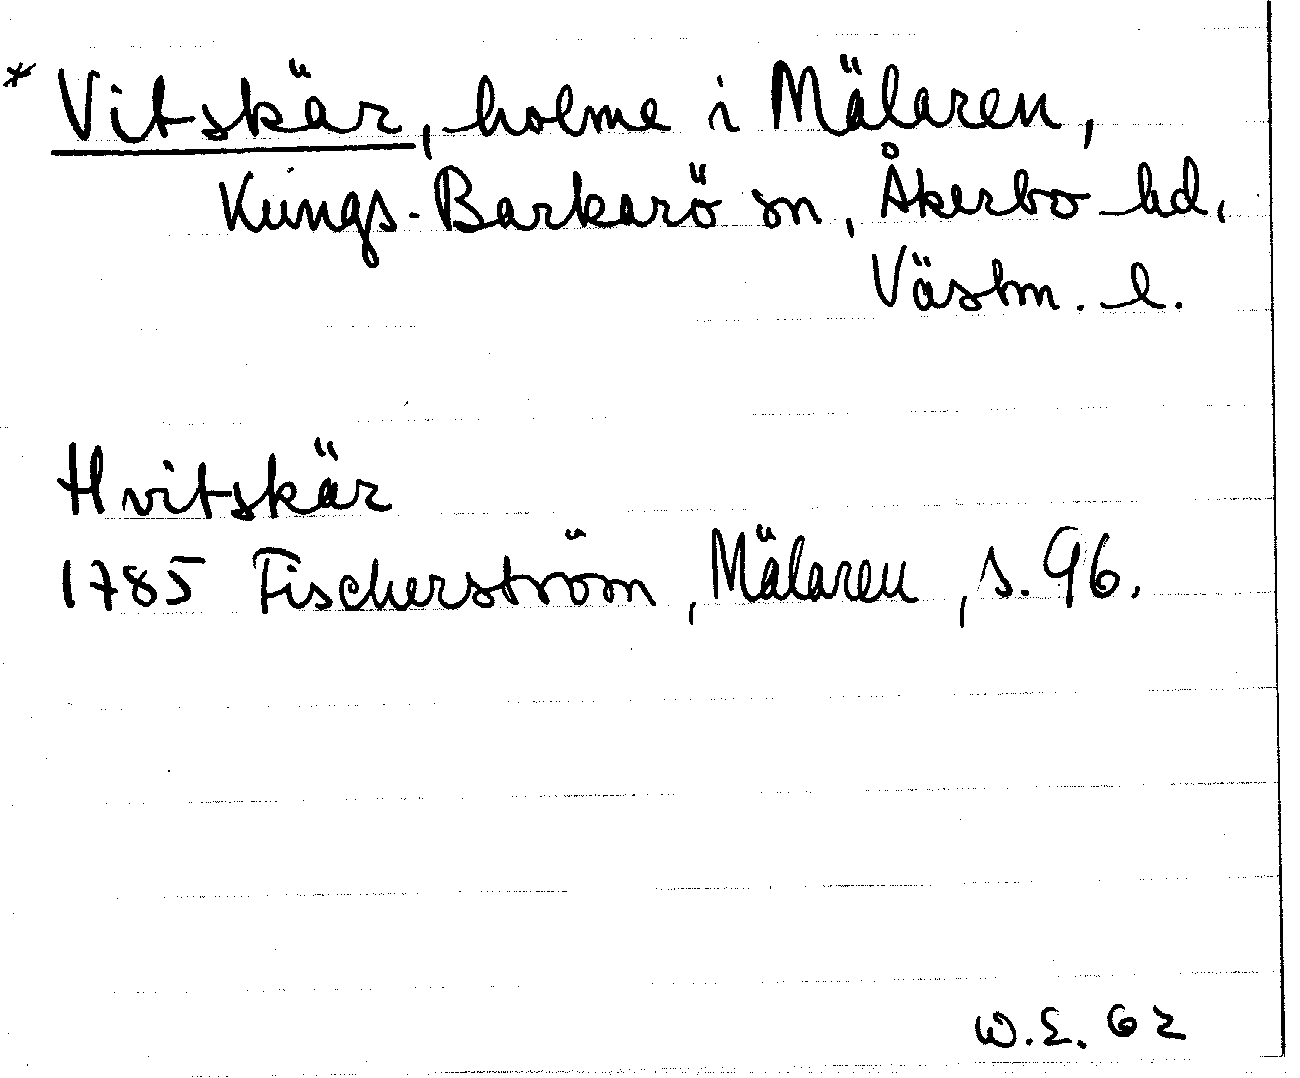 * Vitskär, holme i Mälaren,
Kungs-Barkarö sn, Åkerbo hd,
Västm. l.
Hvitskär
1785 Fischerström, Mälaren, s. 96.
W.E. 62